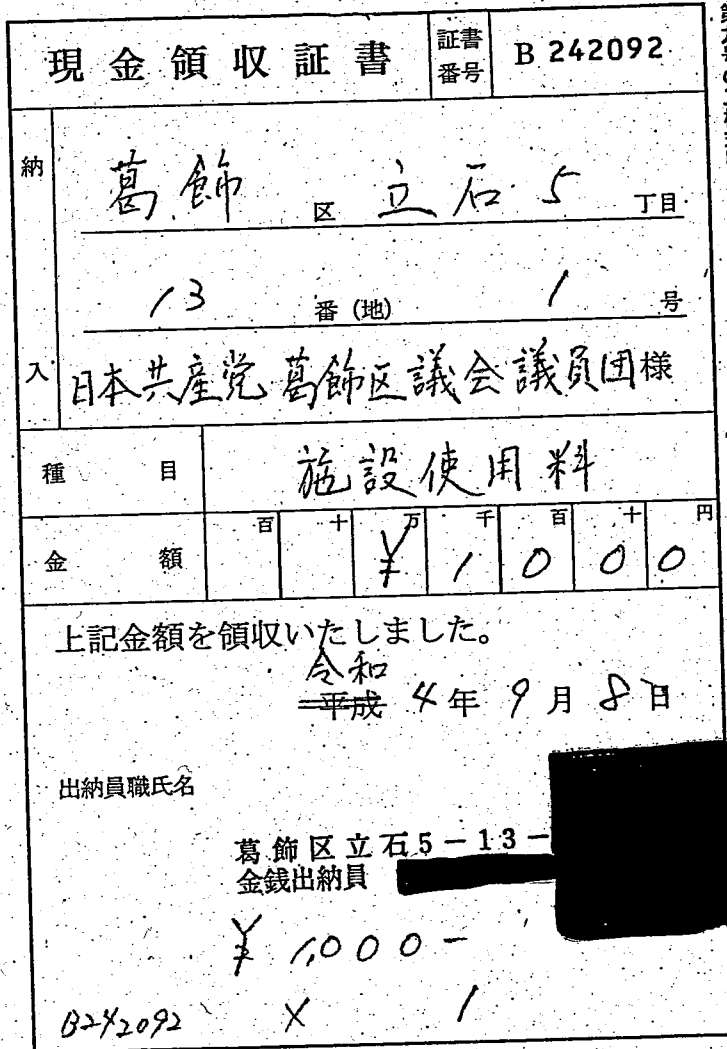 現金領収証書 証書番号 B 242092
納入
葛飾 区 立石 5 丁目
13 番(地) 1 号
日本共産党 葛飾区議会議員団 様
種目 施設使用料
百 十 万 千 百 十 円
金額 ¥ 1 0 0 0
上記金額を領収いたしました。
令和
平成 4 年 9 月 8 日
出納員職氏名
葛飾区立石5-13-
金銭出納員
¥ 1,000-
B242092 × 1